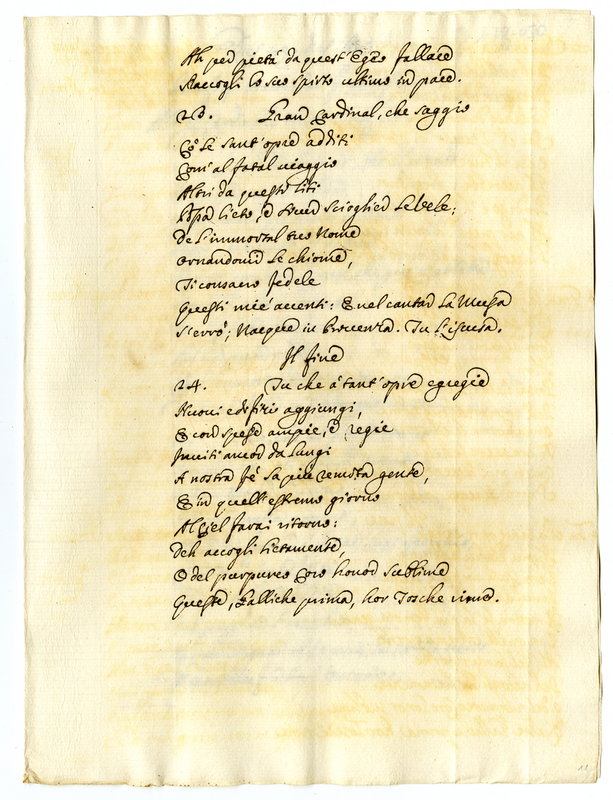 Ah per pietà da quest'Egeo fallace
Raccogli lo suo spirto ultimo in pace.
23. Gran Cardinal, che saggio
Cõ le sant'opre additi
Com'al fatal viaggio
Altri da questi liti
Possa lieto, e scioglier le vele;
De l'immortal tuo Nome
Ornandomi le chiome,
Ti consacro fedele
Questi miei accenti: E nel cantar La Musa
S'errò; Nacque in Provenza. Tu l'iscusa.
Il fine
24. Tu che à tant'opre egregie
Nuovi edifizij aggiungi,
E con spese ampie, e regie
Inviti ancor da lungi
A nostra fé la più remota gente,
E in quell'estremo giorno
Al Ciel farai ritorno:
Deh accogli lietamente,
O del purpureo Coro honor sublime
Queste, Galliche prima, hor Tosche rime.